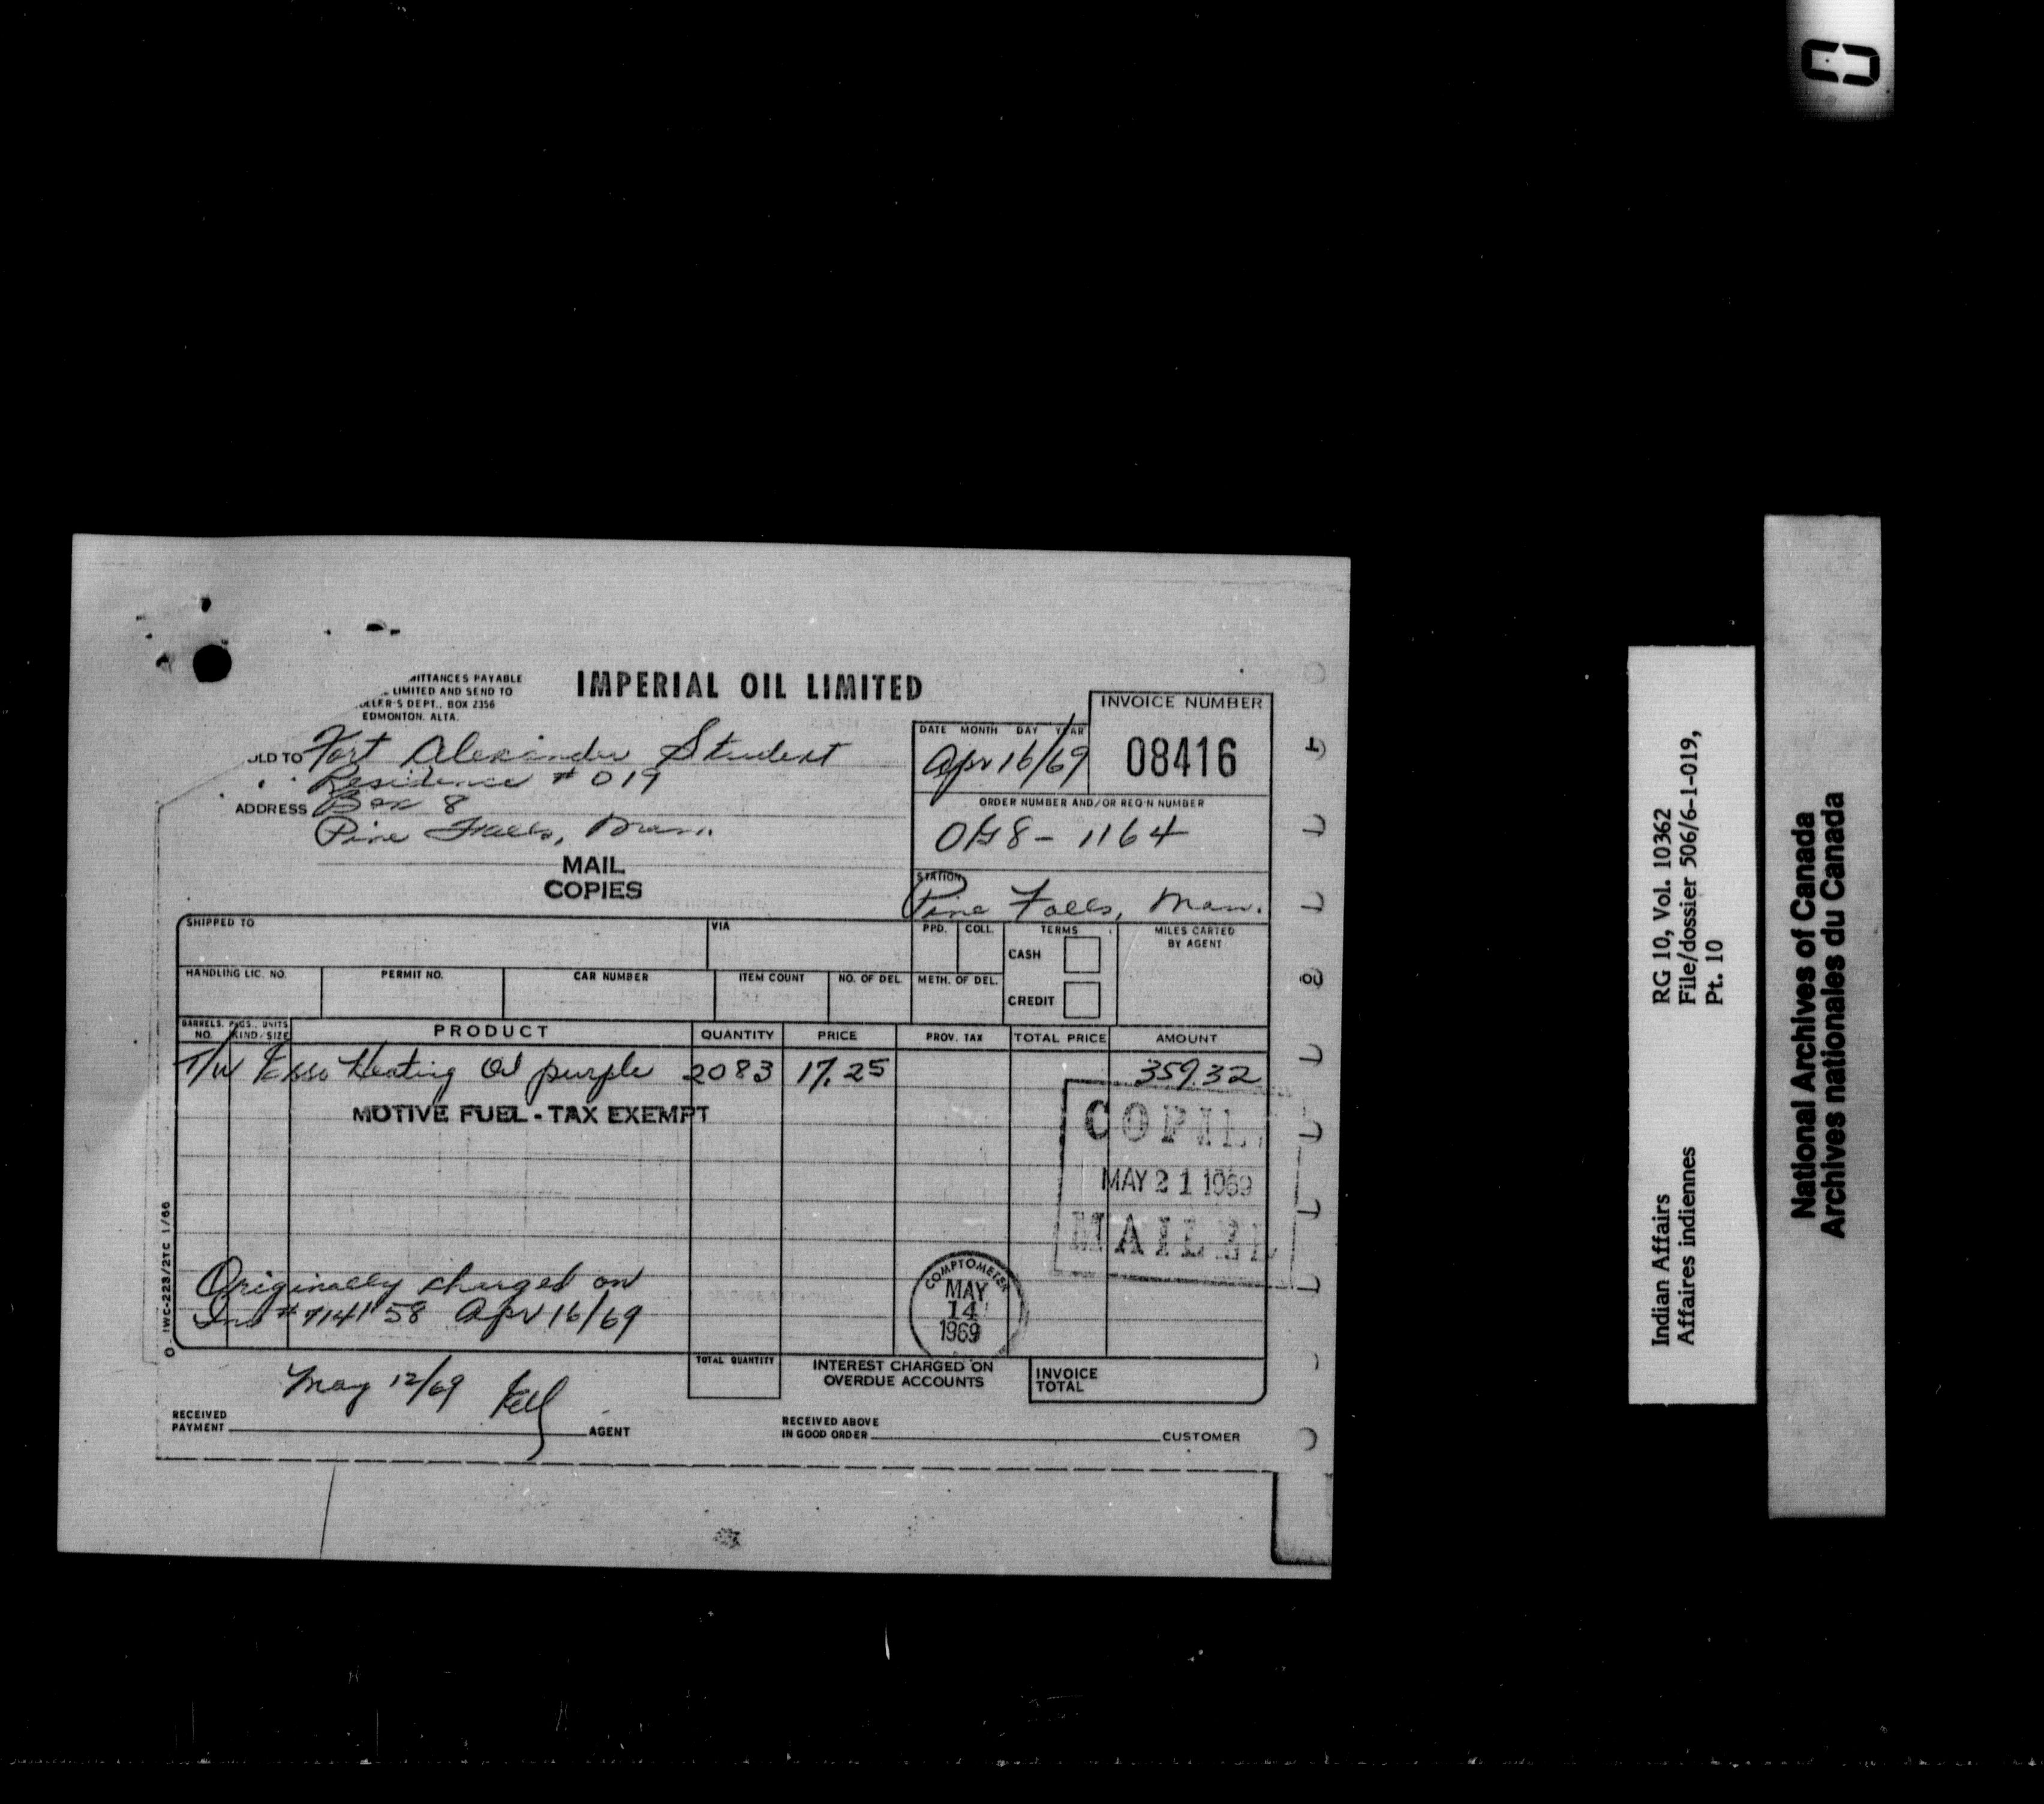 MITTANCES PAYABLE
LIMITED AND SEND TO
OLLER'S DEPT., BOX 2356
EDMONTON, ALTA.
IMPERIAL OIL LIMITED
INVOICE NUMBER
08416
DATE MONTH DAY YEAR
Apr 16/69
OLD TO Fort Alexander Student
Residence # 019
ADDRESS Box 8
Pine Falls, Man.
ORDER NUMBER AND/OR REQ'N NUMBER
1164
STATION
Pine Falls, Man.
MAIL
COPIES
SHIPPED TO
VIA
PPD. COLL.
TERMS
CASH
CREDIT
MILES CARTED
BY AGENT
HANDLING LIC. NO. PERMIT NO. CAR NUMBER ITEM COUNT NO. OF DEL. METH. OF DEL.
BARRELS, PKGS., UNITS
NO. KIND/SIZE PRODUCT QUANTITY PRICE PROV. TAX TOTAL PRICE AMOUNT
T/W Esso Heating Oil purple 2083 17.25 359.32
MOTIVE FUEL - TAX EXEMPT
COPIE
MAY 21 1969
MAILE
Originally charged on
Inv # 714158 Apr 16/69
COMPTOMETER
MAY
14
1969
IWC-223/2TC 1/66
TOTAL QUANTITY
INTEREST CHARGED ON
OVERDUE ACCOUNTS
INVOICE
TOTAL
May 12/69
RECEIVED
PAYMENT AGENT
RECEIVED ABOVE
IN GOOD ORDER CUSTOMER
Indian Affairs RG 10, Vol. 10362
Affaires indiennes File/dossier 506/6-1-019,
Pt. 10
National Archives of Canada
Archives nationales du Canada